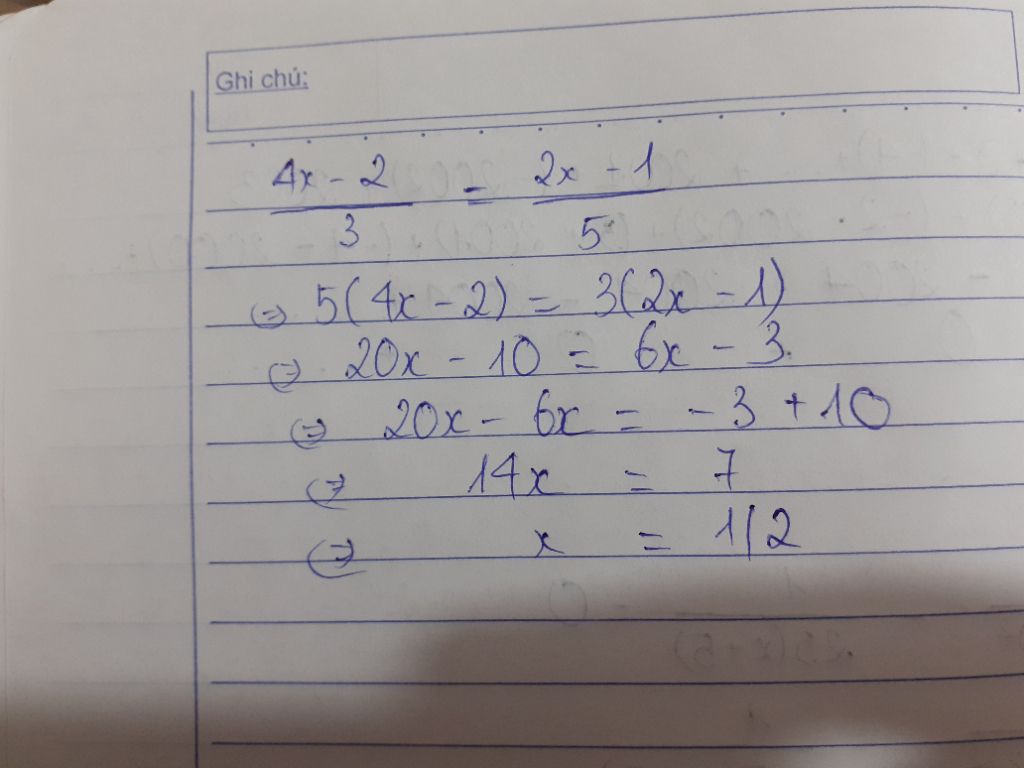 Ghi chú:
4x - 2 = 2x + 1
3 5
⇔ 5(4x - 2) = 3(2x - 1)
⇔ 20x - 10 = 6x - 3
⇔ 20x - 6x = -3 + 10
⇔ 14x = 7
⇔ x = 1/2